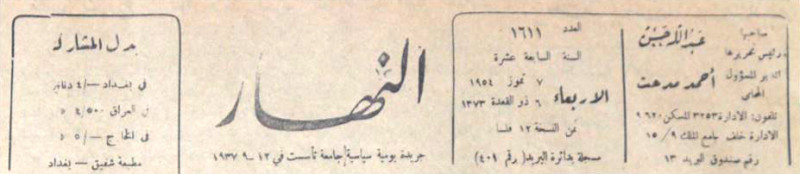 صاحبها
عبدالله حسين
ورئيس تحريرها
المدير المسؤول
أحمد مدحت
المحامي
تلفون: الادارة ٣٢٥٣ المسكن ٩٦٢٠
الادارة خلف جامع الملك ١٥/٩
رقم صندوق البريد ١٣
العدد ١٦١١
السنة السابعة عشرة
الاربعاء
٧ تموز ١٩٥٤
٦ ذو القعدة ١٣٧٣
ثمن النسخة ١٢ فلسا
مسجلة بدائرة البريد (رقم ٤٠١)
النهار
جريدة يومية سياسية جامعة تأسست في ١٢-٩-١٩٣٧
بدل المشاركة
في بغداد -/٤ دنانير
في العراق ٤/٥٠٠
في الخارج -/٥
مطبعة شفيق - بغداد